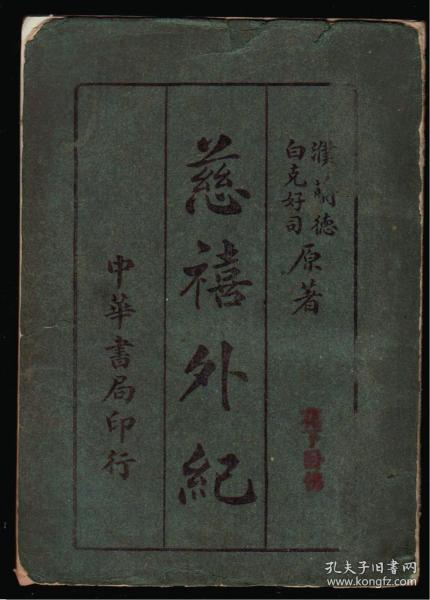 濮蘭德
白克好司
原著
慈禧外紀
中華書局印行
孔夫子旧书网
www.kongfz.com